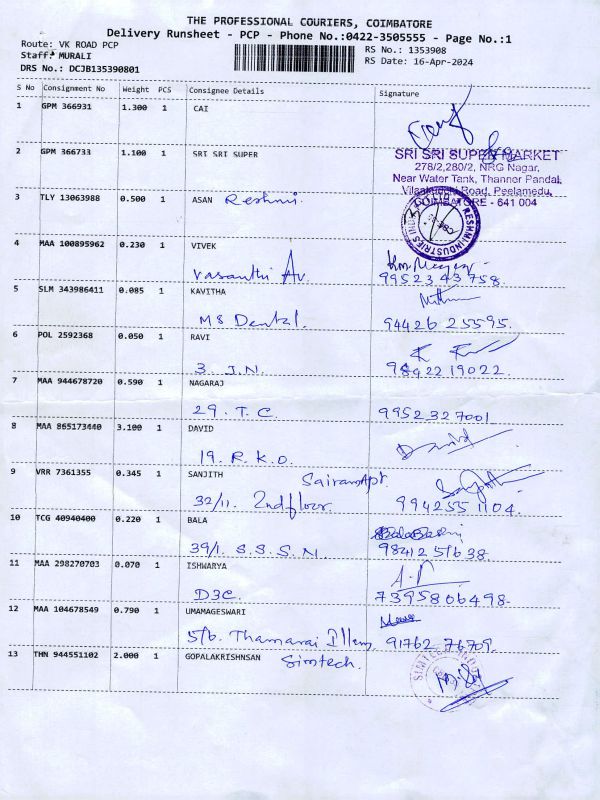 THE PROFESSIONAL COURIERS, COIMBATORE
Delivery Runsheet - PCP - Phone No.:0422-3505555 - Page No.:1
Route: VK ROAD PCP
RS No.: 1353908
Staff: MURALI
RS Date: 16-Apr-2024
DRS No.: DCJB135390801
S No Consignment No Weight PCS Consignee Details Signature
1 GPM 366931 1.300 1 CAI
2 GPM 366733 1.100 1 SRI SRI SUPER
SRI SRI SUPER MARKET
278/2,280/2, NRG Nagar,
Near Water Tank, Thanner Pandal,
Road, Peelamedu,
COIMBATORE - 641 004
3 TLY 13063988 0.500 1 ASAN Reshmi
RESHMI INDUSTRIES
4 MAA 100895962 0.230 1 VIVEK
Vasanthi Av
99523 43758.
5 SLM 343986411 0.085 1 KAVITHA
MS Dental.
94426 25595.
6 POL 2592368 0.050 1 RAVI
3. J.N.
98422 19022.
7 MAA 944678720 0.590 1 NAGARAJ
29. T.C.
9952327001
8 MAA 865173440 3.100 1 DAVID
David
19. R.K.O.
9 VRR 7361355 0.345 1 SANJITH Sairam Apt
32/11. 2nd floor
9942551104.
10 TCG 40940400 0.220 1 BALA
39/1. S.S.S.N.
98412 51638.
11 MAA 298270703 0.070 1 ISHWARYA
D3C.
7395806498.
12 MAA 104678549 0.790 1 UMAMAGESWARI
5/6. Thamarai Illam, 91762 76709.
13 THN 944551102 2.000 1 GOPALAKRISHNSAN Simtech.